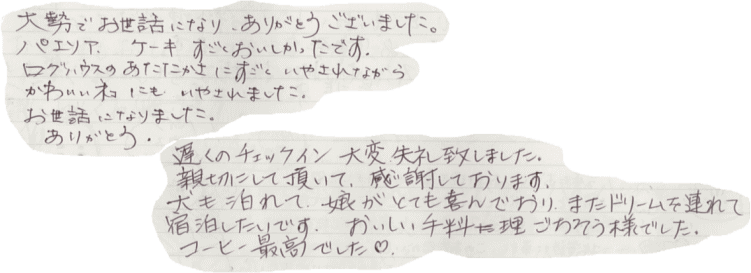 大勢でお世話になり、ありがとうございました。
パエリア、ケーキ すごくおいしかったです。
ログハウスのあたたかさにすごく いやされながら
かわいいネコ にも いやされました。
お世話になりました。
ありがとう。
遅くのチェックイン 大変失礼致しました。
親切にして頂いて、感謝しております。
犬も泊れて、娘がとても喜んでおり、またドリームを連れて
宿泊したいです。 おいしい手料理 ごちそう様でした。
コーヒー最高でした♡.